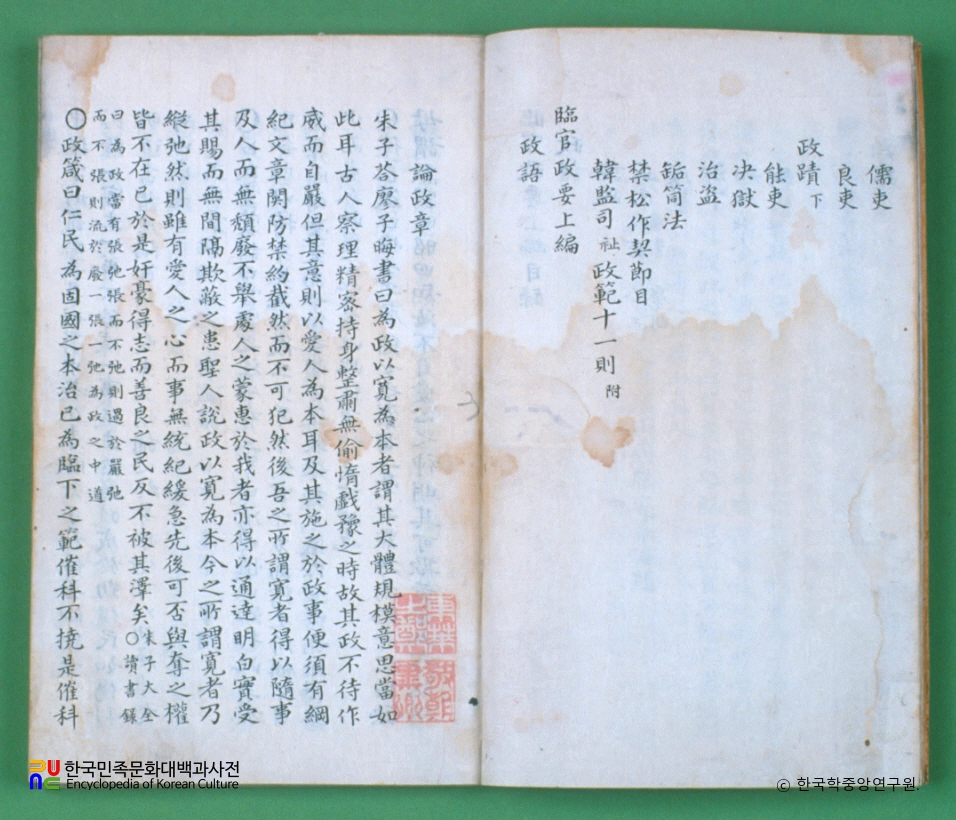 儒吏
良吏
政蹟下
能吏
决獄
治盜
缿筒法
禁松作契節目
韓監司祉政範十一則附
臨官政要上編
政語
論政章
朱子荅廖子晦書曰為政以寬為本者謂其大體規模意思當如
此耳古人察理精密持身整肅無偷惰戲豫之時故其政不待作
威而自嚴但其意則以愛人為本耳及其施之於政事便須有綱
紀文章関防禁約截然而不可犯然後吾之所謂寬者得以隨事
及人而無頹廢不舉處人之蒙惠於我者亦得以通達明白實受
其賜而無間隔欺蔽之患聖人說政以寬為本今之所謂寬者乃
縱弛然則雖有愛人之心而事無統紀緩急先後可否與奪之權
皆不在已於是奸豪得志而善良之民反不被其澤矣朱子大全○讀書錄
曰為政當有張弛張而不弛則過於嚴弛
而不張則流於廢一張一弛為政之中道
○政箴曰仁民為固國之本治已為臨下之範催科不撓是催科
한국민족문화대백과사전
Encyclopedia of Korean Culture
© 한국학중앙연구원